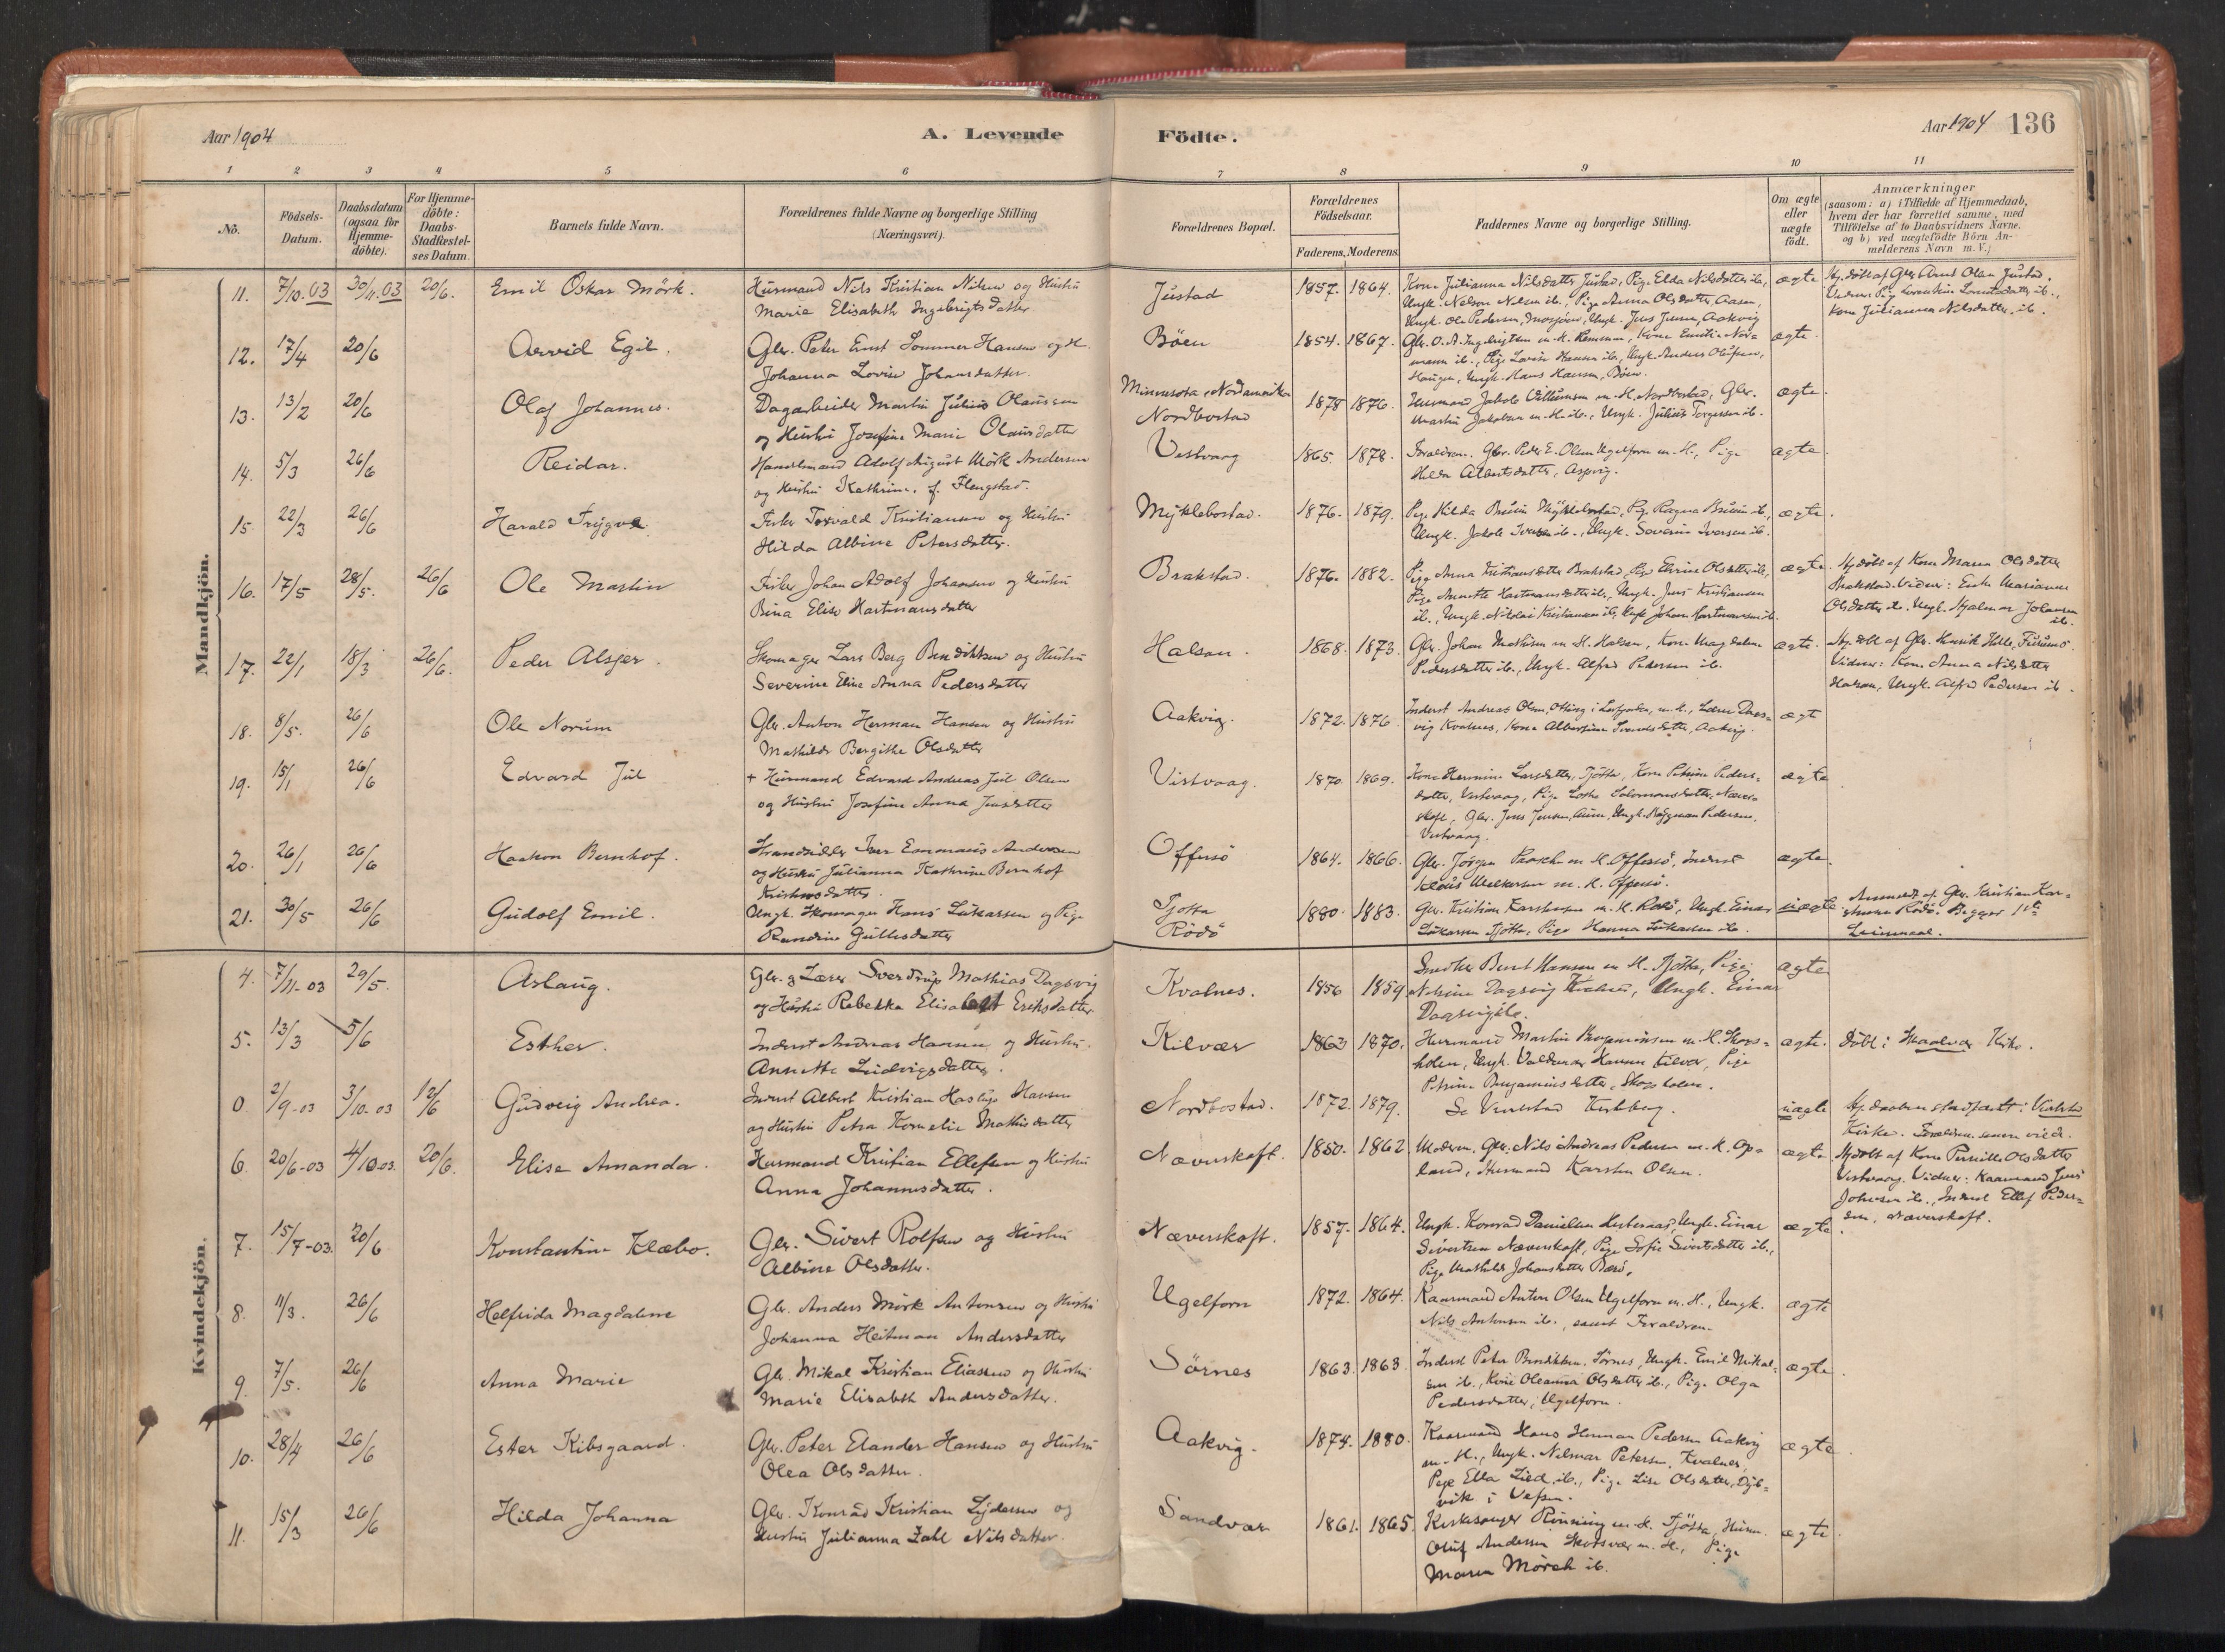 Aar 1904
A. Levende
Födte.
Aar 1904 136
1 2 3 4 5 6 7 8 9 10 11
No.
Födsels-Datum.
Daabsdatum (ogsaa for Hjemme-döbte).
For Hjemme-döbte: Daabs-Stadfæstel-ses Datum.
Barnets fulde Navn.
Forældrenes fulde Navne og borgerlige Stilling (Næringsvei).
Forældrenes Bopæl.
Forældrenes Födselsaar.
Faderens. Moderens.
Faddernes Navne og borgerlige Stilling.
Om ægte eller uægte födt.
Anmærkninger (saasom: a) i Tilfælde af Hjemmedaab, hvem der har forrettet samme, med Tilföielse af to Daabsvidners Navne. og b) ved uægtefödte Börn An-melderens Navn m. V.)
Mandkjön.
11. 7/10.03 30/11.03 20/6. Emil Oskar Mörk. Husmand Nils Kristian Nilsen og Hustru
Marie Elisabeth Ingebrigtsdatter
Justad 1857. 1864. Kone Julianna Nilsdatter Justad, Pige Elda Nilsdatter ib.,
Ungk. Nelson Nilsen ib., Pige Anna Olsdatter, Aasen,
Ungk. Ole Pedersen, Mosjöen, Ungk. Jens Jensen, Aakvig
ægte Hj. döbt af Gbr. Arnt Olsen Justad.
Kone Julianna Nilsdatter ib.
12. 17/4 20/6 Arvid Egil. Gbr. Peter Ernst Sommer Hansen og H.
Johanna Lovise Johansdatter.
Böen 1854. 1867. ægte.
Haugen, Ungk. Hans Hansen, Böen.
13. 13/2 20/6 Olaf Johannes. Dagarbeider Martin Julius Olaussen
og Hustru Josefine Marie Olausdatter
Minnesota, Nordamerika
Nordbostad 1878 1876. Husmand Jakob Villumsen m. H. Nordbostad, Gbr.
Martin Jakobsen m. H. ib., Ungk. Julius Torgersen ib. ægte.
14. 5/3 26/6 Reidar. Handelsmand Adolf August Mörk Andersen
og Hustru Kathrine, f. Flengstad.
Vestvaag 1865. 1878. Forældrene. Gbr. Peder E. Olsen Ugelforn m. H., Pige
Hilda Albertsdatter, Aspvig. ægte.
15. 22/3 26/6 Harald Trygve. Fisker Torvald Kristiansen og Hustru
Hilda Albine Petersdatter.
Myklebostad. 1876. 1879. ægte.
Ungk. Jakob Iversen ib., Ungk. Severin Iversen ib.
16. 17/5 28/5. 26/6 Ole Martin Fisker Johan Adolf Johansen og Hustru
Bina Elise Hartmansdatter
Brakstad. 1876. 1882. Pige Anna Kristiansdatter Brakstad, Pige Elvine Olsdatter ib.,
Pige Annette Hartmansdatter ib., Ungk. Jens Kristiansen
ib., Ungk. Nikolai Kristiansen ib., Ungk. Johan Hartmansen ib.
ægte. Hj. döbt af Kone Maren Olsdatter
Brakstad. Vidner: Enke Marianne
Olsdatter ib. Ungk. Hjalmar Johansen
ib.
17. 22/1 18/3 26/6. Peder Alsger. Skomager Lars Berg Bendiktsen og Hustru
Severine Eline Anna Pedersdatter
Halsan. 1868. 1873. Gbr. Johan Mathisen m. H. Halsan, Kone Magdalena
Pedersdatter ib., Ungk. Alfred Pedersen ib.
ægte. Hj. döbt af Gbr. Henrik
Vidner: Kone Anna Nilsdatter
Halsan, Ungk. Alfred Pedersen ib.
18. 8/5. 26/6 Ole Norum Gbr. Anton Herman Hansen og Hustru
Mathilde Bergithe Olsdatter
Aakvig. 1872. 1876. Inderst Andreas Olsen, m. H., Lærer Dags-
vig Kvalnes, Kone Albertine Aakvig. ægte
19. 15/1 26/6 Edvard Jul + Husmand Edvard Andreas Jul Olsen
og Hustru Josefine Anna Jensdatter
Vistvaag. 1870. 1869. Kone Hermine Larsdatter, Tjötta, Kone Petrine Peders-
datter, Vestvaag, Pige Salomonsdatter, Næver-
skoft, Gbr. Jens Jensen, Ungk. Pedersen,
Vestvaag. ægte
20. 26/1 26/6 Haakon Bernhof. Strandsidder Iver Emmaus Andersen
og Hustru Julianna Kathrine Bernhof
Kristensdatter.
Offersö 1864. 1866. Gbr. Jörgen m. H. Offersö, Inderst
m. H. Offersö. ægte.
21. 30/5 26/6 Gudolf Emil. Ungk. Skomager Hans Lukassen og Pige
Randine Gulliksdatter
Tjötta
Rödö 1880. 1883. Gbr. Kristian Karstensen m. H. Rödö, Ungk. Einar
Lukassen Tjötta, Pige Hanna Lukassen ib.
uægte. Anmeldt af Gbr. Kristian Kar-
stensen Rödö. Begges 1ste
Leiermaal.
Kvindekjön.
4. 7/11-03 29/5. Aslaug. Gbr. og Lærer Sverdrup Mathias Dagsvig
og Hustru Rebekka Elisabet Eriksdatter
Kvalnes. 1856 1859 Snedker Bernt Hansen m. H. Tjötta, Pige
Nelsine Dagsvig Kvalnes, Ungk. Einar
Dagsvig ib. ægte
5. 13/3 5/6 Esther. Inderst Andreas Hansen og Hustru
Annette Ludvigsdatter.
Kilvær 1863 1870. Husmand Martin Benjaminsen m. H. Skogs-
holm, Ungk. Valdemar Hansen Kilvær, Pige
Petrine Benjaminsdatter, Skogsholm.
ægte. Döbt i Skaalvær Kirke.
0 2/9-03 3/10-03 12/6 Gudveig Andrea. Inderst Albert Kristian Haslig Hansen
og Hustru Petra Kornelie Mathisdatter
Nordbostad. 1872. 1879. Se Vevelstad Kirkebog.
uægte Hj. daaben stadfæst i Vevelstad
Kirke. Forældrene senere viede.
6. 20/6-03 4/10.03. 20/6. Elise Amanda. Husmand Kristian Ellefsen og Hustru
Anna Johannesdatter.
Næverskoft. 1850. 1862 Moderen, Gbr. Nils Andreas Pedersen m. H. Op-
land, Husmand Karsten Olsen.
ægte Hj. döbt af Kone Pernille Olsdatter
Vestvaag. Vidner: Kaarmand Jens
Johnsen ib., Inderst Ellef Peder-
sen, Næverskoft.
7. 15/7-03. 20/6 Konstantine Klæbo. Gbr. Sivert Rolfsen og Hustru
Albine Olsdatter.
Næverskoft. 1857. 1864. Ungk. Konrad Danielsen Ungk. Einar
Sivertsen Næverskoft, Pige Sofie Sivertsdatter ib.,
Pige Mathilde Johansdatter ægte
8. 11/3. 26/6 Helfrida Magdalene Gbr. Anders Mörk Antonsen og Hustru
Johanna Heitman Andersdatter
Ugelforn 1872. 1864. Kaarmand Anton Olsen Ugelforn m. H., Ungk.
Nils Antonsen ib., samt Forældrene. ægte
9. 7/5. 26/6 Anna Marie Gbr. Mikal Kristian Eliassen og Hustru
Marie Elisabeth Andersdatter.
Sörnes 1863. 1863. Inderst Peter Bendiktsen, Sörnes, Ungk. Emil Mikal-
sen ib., Kone Oleanna Olsdatter ib., Pige Olga
Pedersdatter, Ugelforn. ægte.
10. 28/4 26/6 Ester Kibsgaard. Gbr. Peter Elander Hansen og Hustru
Olea Olsdatter.
Aakvig. 1874. 1880. Kaarmand Hans Herman Pedersen Aakvig
m. H., Ungk. Nilmar Petersen, Kvalnes,
Pige Ella Lied, ib., Pige Lise Olsdatter, Dyb-
vik i Vefsn. ægte.
11. 15/3 26/6 Hilda Johanna Gbr. Konrad Kristian Lydersen og
Hustru Julianna Zahl Nilsdatter.
Sandvær 1861. 1865. Kirkesanger Rönning m. H. Tjötta, Husm.
Oluf Andersen Skotsvær m. H., Pige
Maren Mörch ib. ægte